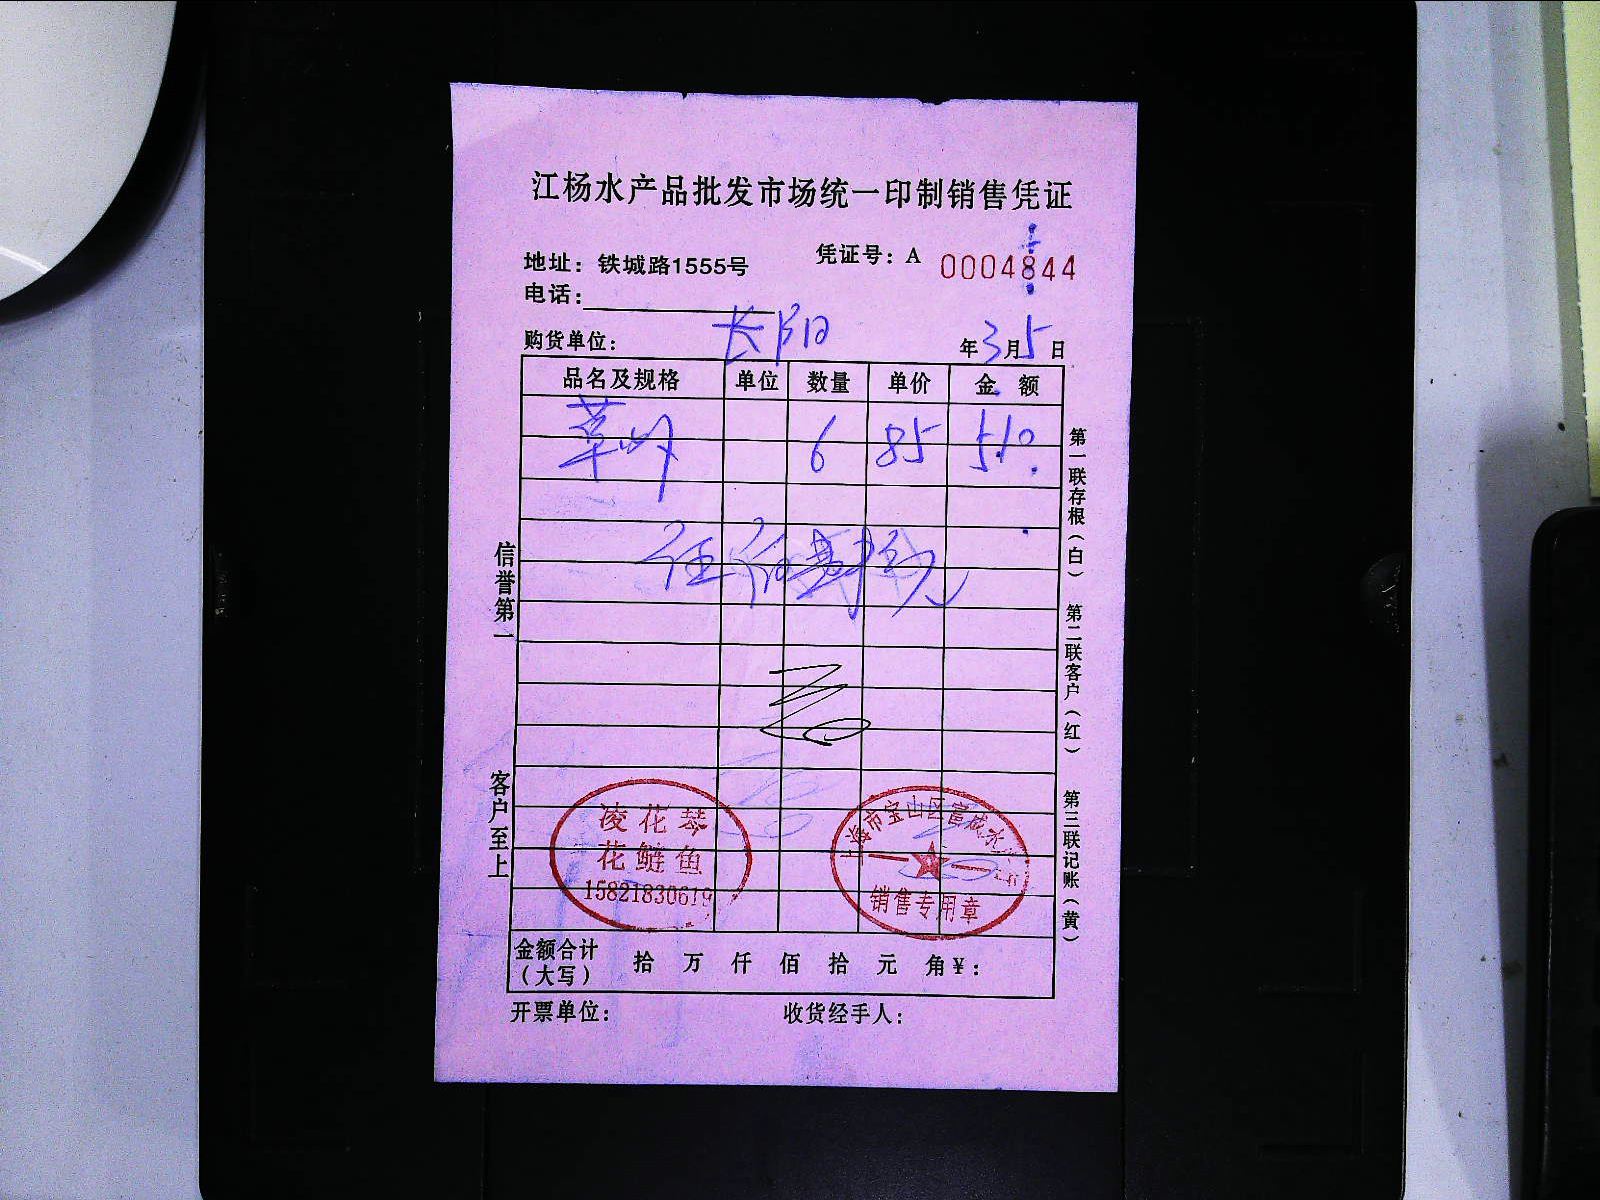 江杨水产品批发市场统一印制销售凭证
地址：铁城路1555号
凭证号：A 0004844
电话：
购货单位：长阳
年3月5日
品名及规格 单位 数量 单价 金额
草 6 85 510
元
信誉第一
客户至上
第一联存根（白）
第二联客户（红）
第三联记账（黄）
凌花琴
花鲢鱼
15821830619
上海市宝山区富成水
销售专用章
金额合计（大写） 拾 万 仟 佰 拾 元 角 ¥：
开票单位：
收货经手人：